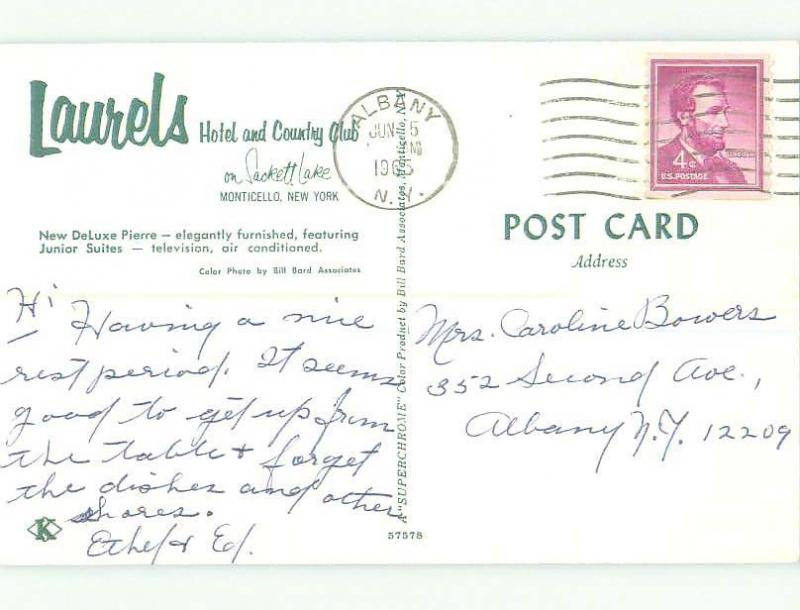 Laurels Hotel and Country Club
on Sackett Lake
MONTICELLO, NEW YORK
New DeLuxe Pierre — elegantly furnished, featuring
Junior Suites — television, air conditioned.
Color Photo by Bill Bard Associates
ALBANY
JUN 5
1965
N.Y.
4¢
U.S. POSTAGE
POST CARD
Address
Hi
Having a nice
rest period. It seems
good to get up from
the table & forget
the dishes and other
shores.
Ethel & Ed.
Mrs. Caroline Bowers
352 Second Ave.,
Albany N.Y. 12209
A "SUPERCHROME" Color Product by Bill Bard Associates, Monticello, N.Y.
K
57578